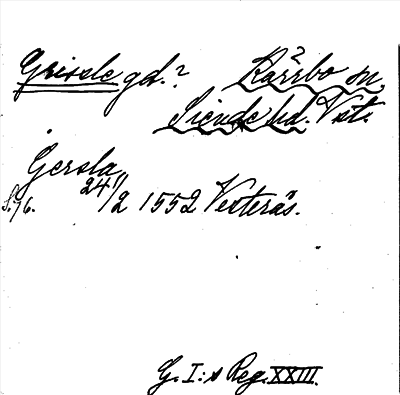 Grissle gd.? Kärrbo sn,
Siende hd. Vst.
Gersla
S. 76. 24/2 1552 Vesterås.
G. I:s Reg. XXIII.